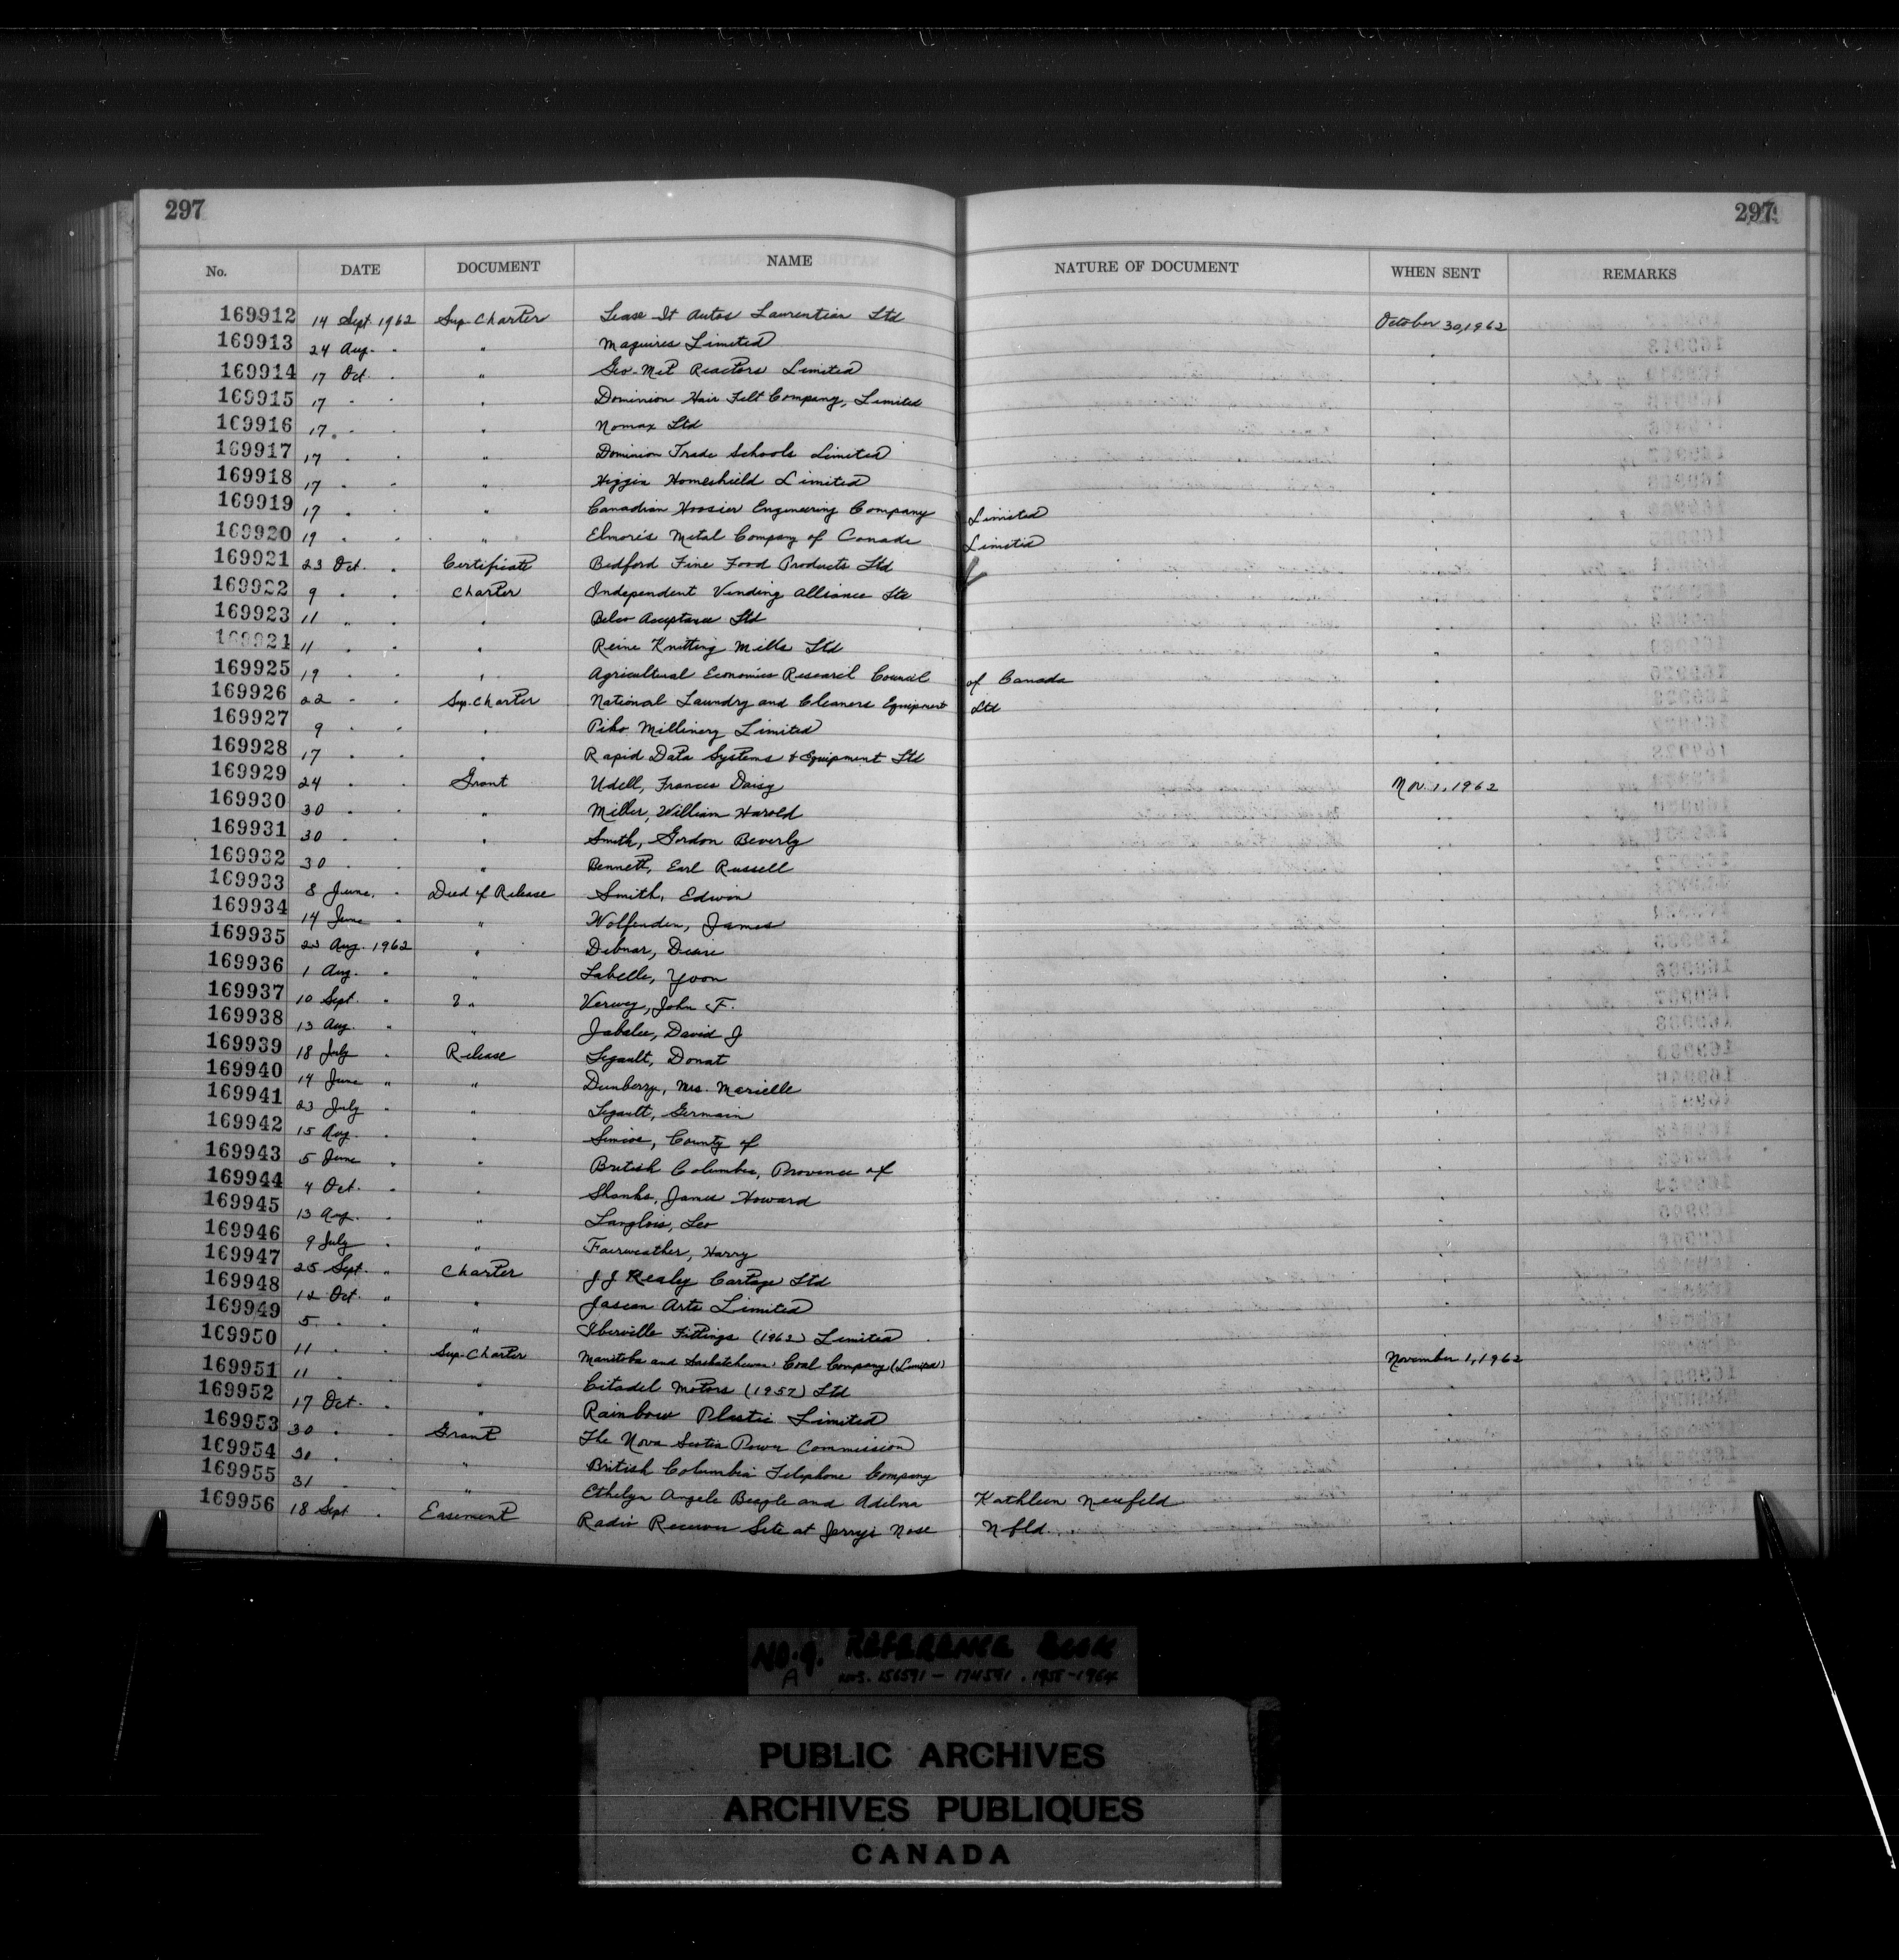 297 297
No. DATE DOCUMENT NAME NATURE OF DOCUMENT WHEN SENT REMARKS
169912 14 Sept. 1962 Sup. Charter Lease It Autos Laurentian Ltd October 30, 1962
169913 24 Aug. " " Maguires Limited "
169914 17 Oct. " " Geo-Met Reactors Limited "
169915 17 " " " Dominion Hair Felt Company, Limited "
169916 17 " " " Nomax Ltd "
169917 17 " " " Dominion Trade Schools Limited "
169918 17 " " " Higgin Homeshield Limited "
169919 17 " " " Canadian Hoosier Engineering Company Limited "
169920 19 " " " Elmore's Metal Company of Canada Limited "
169921 23 Oct. " Certificate Bedford Fine Food Products Ltd "
169922 9 " " Charter Independent Vending Alliance Ltd "
169923 11 " " " Belco Acceptance Ltd "
169924 11 " " " Reine Knitting Mills Ltd "
169925 19 " " " Agricultural Economics Research Council of Canada "
169926 22 " " Sup. Charter National Laundry and Cleaners Equipment Ltd "
169927 9 " " " Piko Millinery Limited "
169928 17 " " " Rapid Data Systems & Equipment Ltd "
169929 24 " " Grant Udell, Frances Daisy Nov. 1, 1962
169930 30 " " " Miller, William Harold "
169931 30 " " " Smith, Gordon Beverly "
169932 30 " " " Bennett, Earl Russell "
169933 8 June. " Deed of Release Smith, Edwin "
169934 14 June " " Wolfenden, James "
169935 23 Aug. 1962 " Debnar, "
169936 1 Aug. " " Labelle, Yvon "
169937 10 Sept. " " Verwey, John F. "
169938 13 Aug. " " Jabalee, David J "
169939 18 July " Release Legault, Donat "
169940 14 June " " Dunberry, Mrs. Marielle "
169941 23 July " " Legault, Germain "
169942 15 Aug. " " Simcoe, County of "
169943 5 June " " British Columbia, Province of "
169944 4 Oct. " " Shanks, James Howard "
169945 13 Aug. " " Langlois, Leo "
169946 9 July " " Fairweather, Harry "
169947 25 Sept. " Charter J J Healy Cartage Ltd "
169948 12 Oct. " " Jascan Arts Limited "
169949 5 " " " Iberville Fittings (1962) Limited "
169950 11 " " Sup. Charter Manitoba and Saskatchewan Coal Company (Limited) November 1, 1962
169951 11 " " " Citadel Motors (1957) Ltd "
169952 17 Oct. " " Rainbow Plastic Limited "
169953 30 " " Grant The Nova Scotia Power Commission "
169954 30 " " " British Columbia Telephone Company "
169955 31 " " " Ethelyn Angele and Adelma Kathleen Neufeld
169956 18 Sept " Easement Radio Receiver Site at Jerry's Nose Nfld.
NO. 9. REFERENCE BOOK
A NOS. 156591 – 174591 . 1955–1964
PUBLIC ARCHIVES
ARCHIVES PUBLIQUES
CANADA